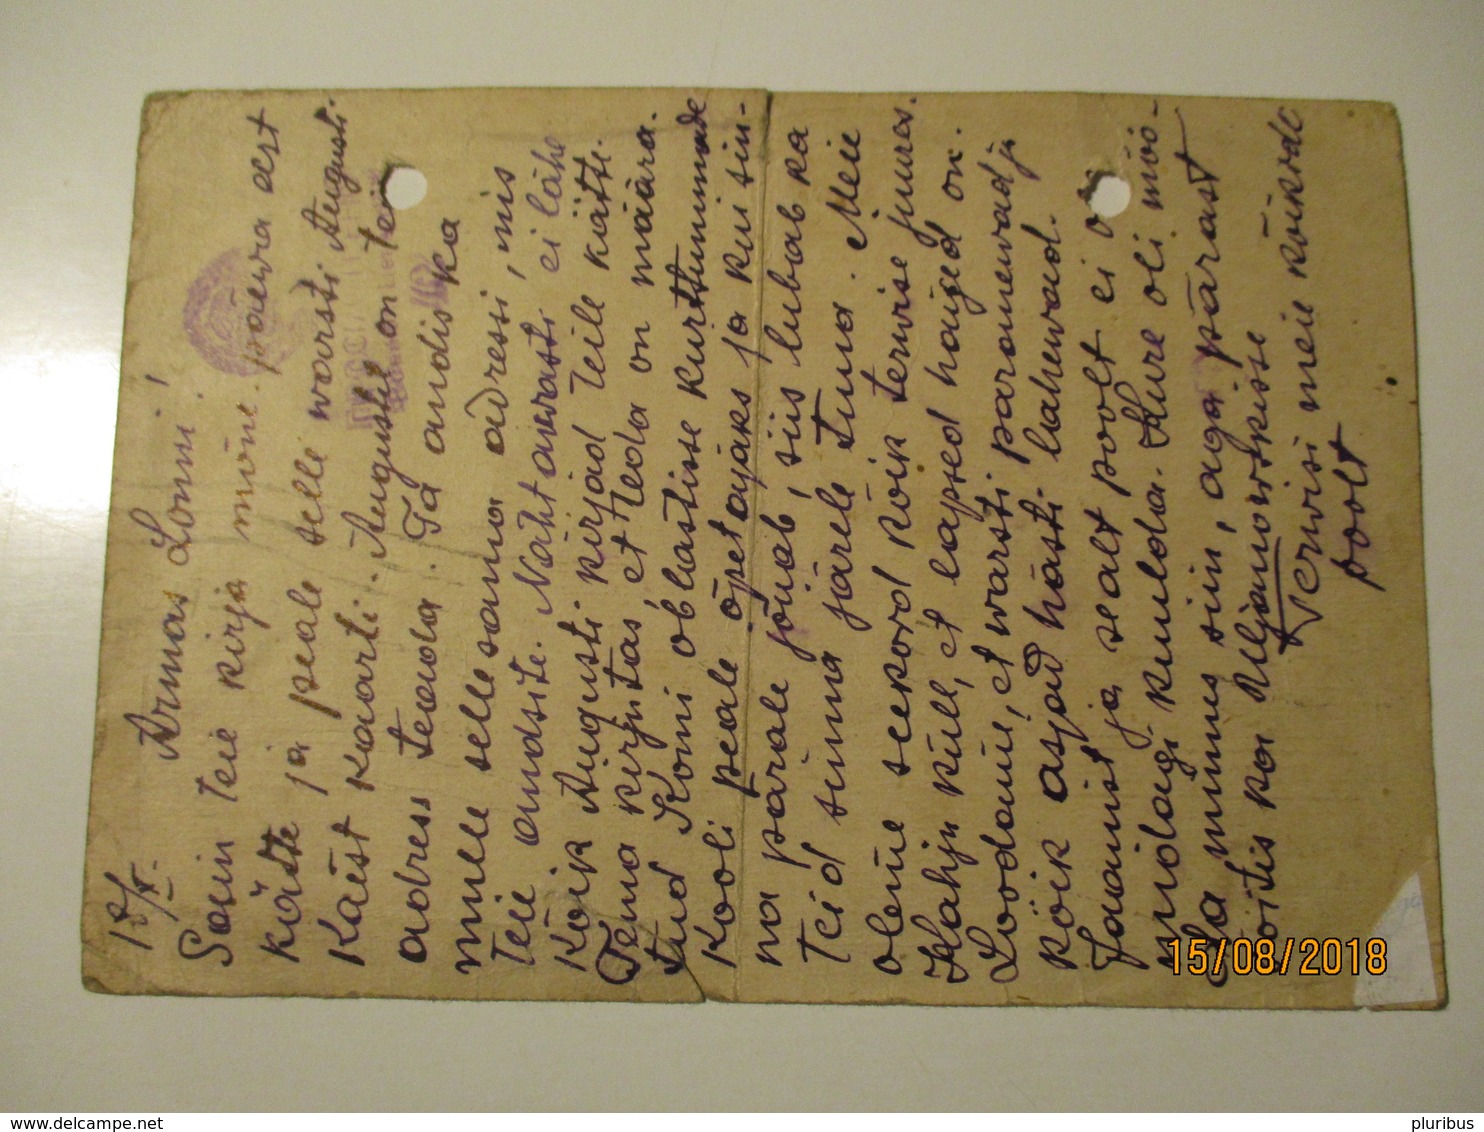 18/X.
Armas Lonni!
Sain teie kirja mõne päewa eest
kätte ja peale selle warsti Augusti
käest kaarti. Augustil on teie
adress teada. Ta andis ka
mulle sellesama adressi, mis
Teie andsite. Nähtawasti ei lähe
kõik Augusti kirjad Teile kätte.
Tema kirjutas, et teda on määra-
tud Komi oblastisse kurttummade
kooli peale õpetajaks ja kui sin-
na pärale jõuab, siis lubab ka
Teid sinna järele tuua. Meie
oleme seekord kõik terwise juures.
Kahju küll, et lapsed haiged on.
Loodame, et warsti paranewad ja
kõik asjad hästi lahewad.
Jaanist ja sealt poolt ei ole
midagi kuulda. Kure oli möö-
da minnes siin, aga pärast
sõitis ka Uljanowskisse
Terwisi meie kõikide
poolt
15/08/2018
pluribus © www.delcampe.net